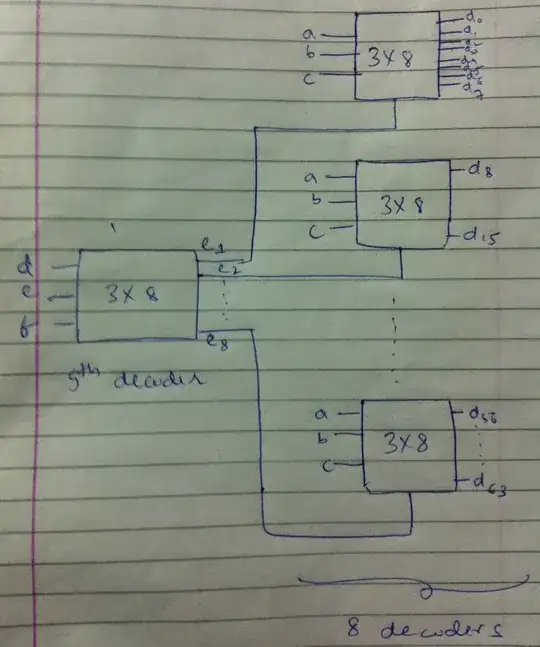 a
b
c
3X8
d0
d1
d7
a
b
c
3X8
d8
d15
d
e
f
3X8
e1
e2
e8
9th decoder
a
b
c
3X8
d56
d63
8 decoders